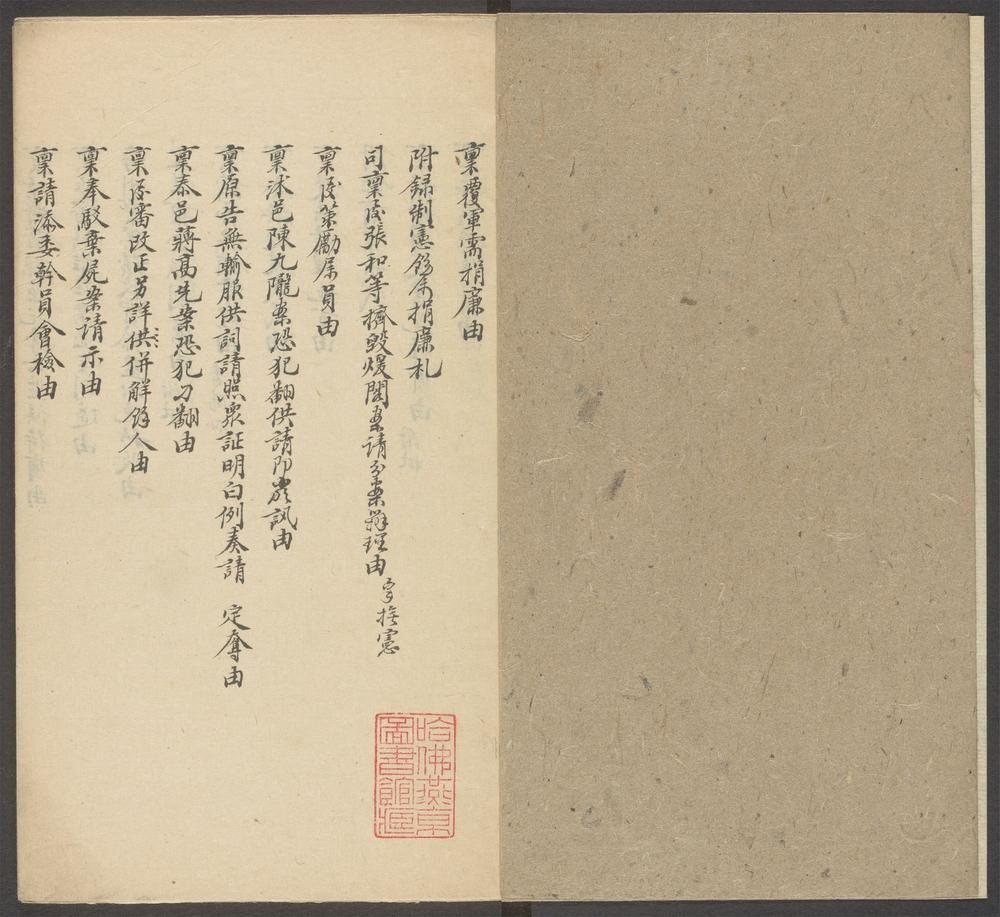 稟覆軍需捐廉由
附録制憲飭余捐廉札
司稟覆張和等擠毀煖閣案請分案辦理由 字撫憲
稟覆策勵屬員由
稟沭邑陳九隴案恐犯翻供請即嵗訊由
稟原告無輸服供詞請照衆証明白例奏請 定奪由
稟泰邑蔣高先案恐犯刁翻由
稟覆審改正另詳供併解餘人由
稟奉駁棄屍案請示由
稟請添委幹員會檢由
哈佛燕京
圖書館藏